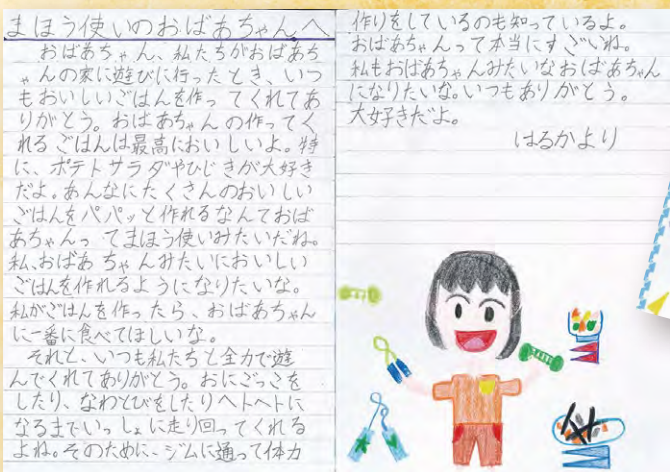 まほう使いのおばあちゃんへ
おばあちゃん、私たちがおばあち
ゃんの家に遊びに行ったとき、いつ
もおいしいごはんを作ってくれてあ
りがとう。おばあちゃんの作ってく
れるごはんは最高においしいよ。特
に、ポテトサラダやひじきが大好き
だよ。あんなにたくさんのおいしい
ごはんをパパッと作れるなんておば
あちゃんってまほう使いみたいだね。
私、おばあちゃんみたいにおいしい
ごはんを作れるようになりたいな。
私がごはんを作ったら、おばあちゃん
に一番に食べてほしいな。
それと、いつも私たちと全力で遊
んでくれてありがとう。おにごっこを
したり、なわとびをしたりヘトヘトに
なるまでいっしょに走り回ってくれる
よね。そのために、ジムに通って体力
作りをしているのも知っているよ。
おばあちゃんって本当にすごいね。
私もおばあちゃんみたいなおばあちゃん
になりたいな。いつもありがとう。
大好きだよ。
はるかより